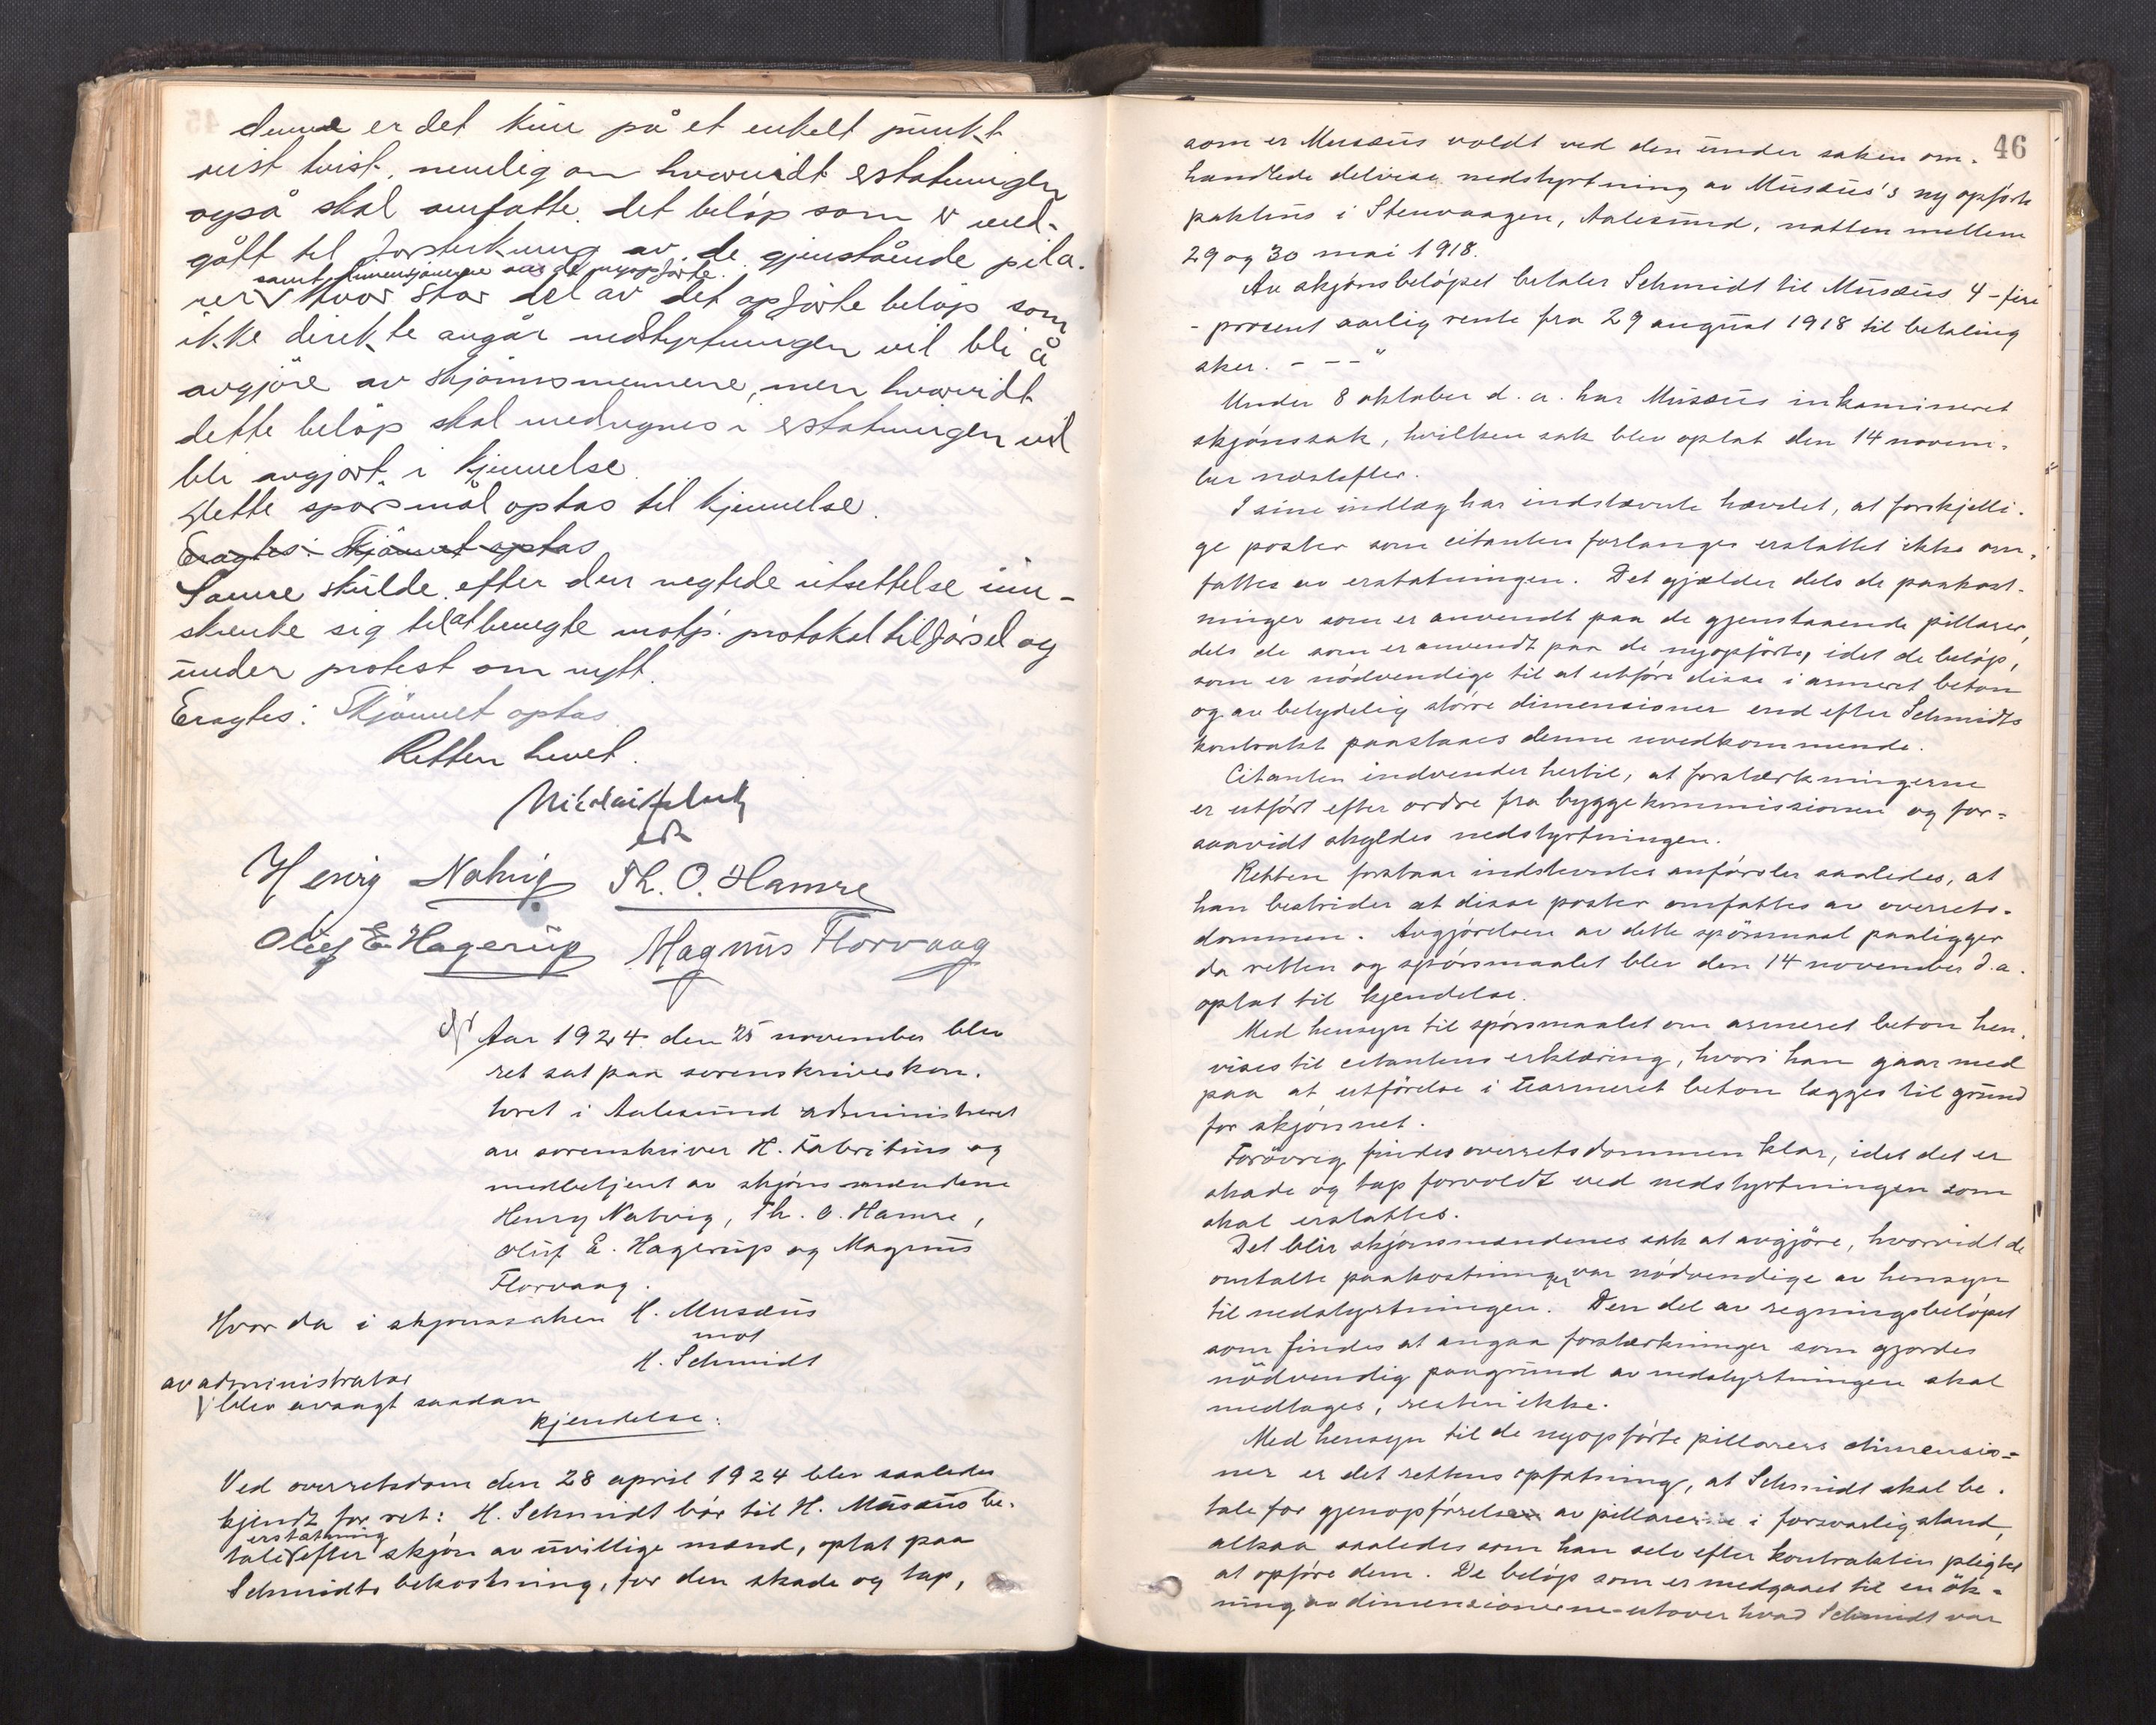 denne er det kun på et enkelt punkt
reist tvist, nemlig om hvorvidt erstatningen
også skal omfatte det beløp som er med-
gått til forsterkning av de gjenstående pila-
samt dimensjonerne av de nyopførte.
rer. Hvor stor del av det opførte beløp som
ikke direkte angår nedstyrtningen vil bli å
avgjøre av skjønnsmennene, men hvorvidt
dette beløp skal medregnes i erstatningen vil
bli avgjort i kjennelse.
Dette spørsmål optas til kjennelse.
Eragtes: Skjønnet optas
Sawe skulde efter den negtede utsettelse inn-
skrenke sig til at benegte motp. protokoltilførsel og
under protest om nytt.
Eragtes: Skjønnet optas.
Retten hevet.
Henrig Natvig Th. O. Hamre
Oluf E. Hagerup Magnus Florvaag
Aar 1924 den 25 november blev
ret sat paa sorenskriverkon-
toret i Aalesund administreret
av sorenskriver H. Fabritius og
medbetjent av skjønsmændene
Henry Natvig, Th. O. Hamre,
Oluf E. Hagerup og Magnus
Florvaag.
Hvor da i skjønssaken H. Musæus
mot
H. Schmidt
av administrator
blev avsagt saadan
kjendelse:
Ved overretsdom den 28 april 1924 blev saaledes
kjendt for ret: H. Schmidt bør til H. Musæus be-
erstatning
tale efter skjøn av uvillige mænd, optat paa
Schmidts bekostning, for den skade og tap,
46
som er Musæus voldt ved den under saken om-
handlede delvise nedstyrtning av Musæus's ny opførte
pakhus i Stenvaagen, Aalesund, natten mellem
29 og 30 mai 1918.
Av skjønsbeløpet betaler Schmidt til Musæus 4 - fire
- procent aarlig rente fra 29 august 1918 til betaling
sker. - - - "
Under 8 oktober d. a. har Musæus inkamineret
skjønssak, hvilken sak blev optat den 14 novem-
ber næstefter.
I sine indlæg har indstævnte hævdet, at forskjelli-
ge poster som citanten forlanger erstattet ikke om-
fattes av erstatningen. Det gjælder dels de paakost-
ninger som er anvendt paa de gjenstaaende pillarer,
dels de som er anvendt paa de nyopførte, idet de beløp,
som er nødvendige til at utføre disse i armeret beton
og av betydelig større dimensioner end efter Schmidts
kontrakt paastaaes denne uvedkommende.
Citanten indvender hertil, at forstærkningerne
er utført efter ordre fra byggekommissionen og for-
saavidt skyldes nedstyrtningen.
Retten forstaar indstevntes anførsler saaledes, at
han bestrider at disse poster omfattes av overrets-
dommen. Avgjørelsen av dette spørsmaal paaligger
da retten og spørsmaalet blev den 14 november d. a.
optat til kjendelse.
Med hensyn til spørsmaalet om armeret beton hen-
vises til citantens erklæring, hvori han gaar med
paa at utførelse i uarmeret beton lægges til grund
for skjønnet.
Forøvrig findes overretsdommen klar, idet det er
skade og tap forvoldt ved nedstyrtningen som
skal erstattes.
Det blir skjønsmændenes sak at avgjøre, hvorvidt de
omtalte paakostninger var nødvendige av hensyn
til nedstyrtningen. Den del av regningsbeløpet
som findes at angaa forstærkninger som gjordes
nødvendig paagrund av nedstyrtningen skal
medtages, resten ikke.
Med hensyn til de nyopførte pillarers dimensio-
ner er det rettens opfatning, at Schmidt skal be-
tale for gjenopførelse av pillarer i forsvarlig stand,
altsaa saaledes som han selv efter kontrakten pligtet
at opføre dem. De beløp som er medgaaet til en øk-
ning av dimensionerne utover hvad Schmidt var